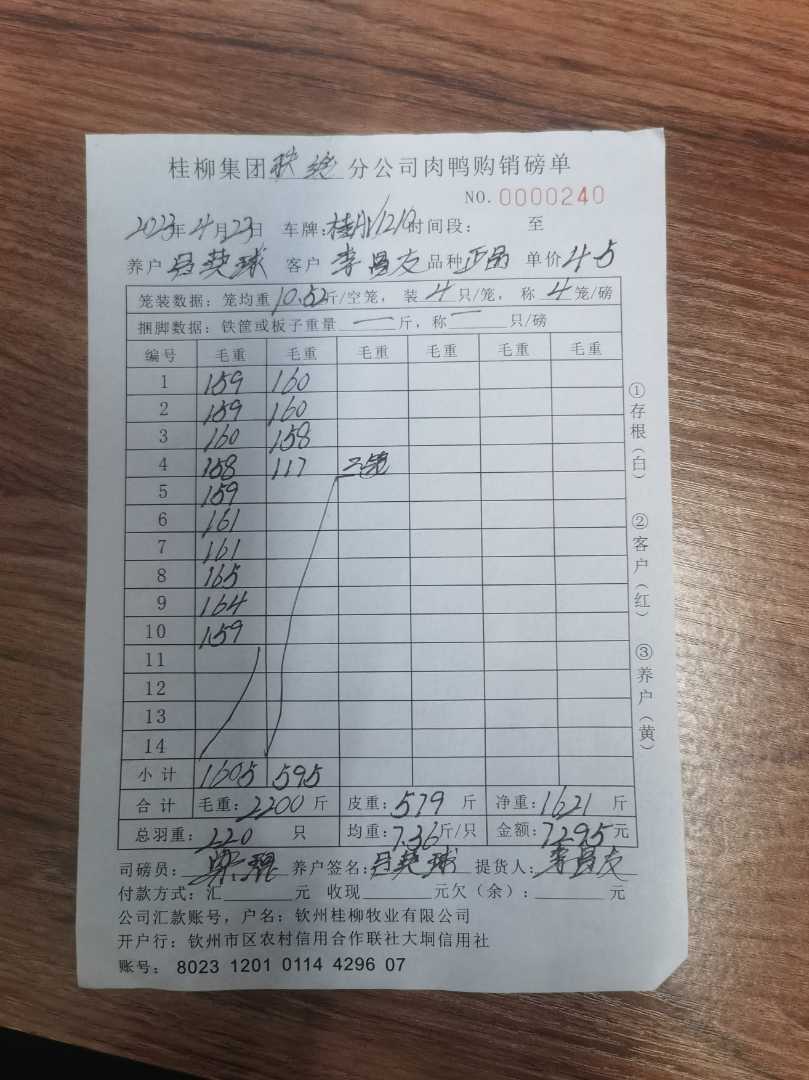 桂柳集团 分公司肉鸭购销磅单
NO. 0000240
2023年4月23日 车牌:桂 1219时间段: 至
养户 吕英球 客户 李昌友 品种 正品 单价 4.5
笼装数据:笼均重 10.52斤/空笼, 装 4 只/笼, 称 4 笼/磅
捆脚数据:铁筐或板子重量 一 斤,称 一 只/磅
编号 毛重 毛重 毛重 毛重 毛重 毛重
1 159 160
2 159 160
3 160 158
4 158 117 三笼
5 159
6 161
7 161
8 165
9 164
10 159
11
12
13
14
小计 1605 595
合计 毛重:2200 斤 皮重:579 斤 净重:1621 斤
总羽重:220 只 均重:7.36斤/只 金额:7295元
司磅员: 养户签名:吕英球 提货人:李昌友
付款方式:汇 元 收现 元欠(余): 元
公司汇款账号,户名:钦州桂柳牧业有限公司
开户行:钦州市区农村信用合作联社大垌信用社
账号: 8023 1201 0114 4296 07
①存根(白) ②客户(红) ③养户(黄)